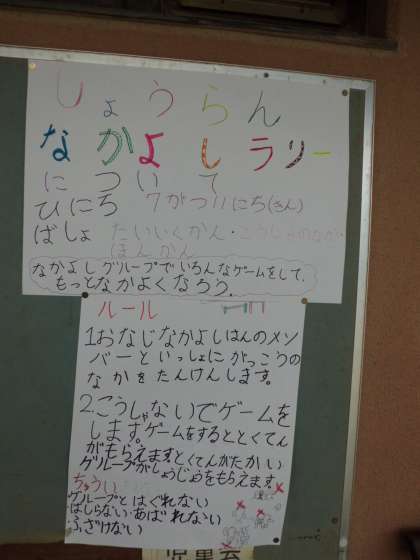 しょうらん
なかよしラリー
について
ひにち 7がつ11にち(きん)
ばしょ たいいくかん・こうしゃのなか・
ほんかん
なかよしグループでいろんなゲームをして、
もっとなかよくなろう。
ルール
1.おなじなかよしはんのメン
バーといっしょにがっこうの
なかをたんけんします。
2.こうしゃないでゲームを
します。ゲームをするととくてん
がもらえます。とくてんがたかい
グループがしょうじょうをもらえます。
ちゅうい
・グループとはぐれない
・はしらない・あばれない
・ふざけない
児童会